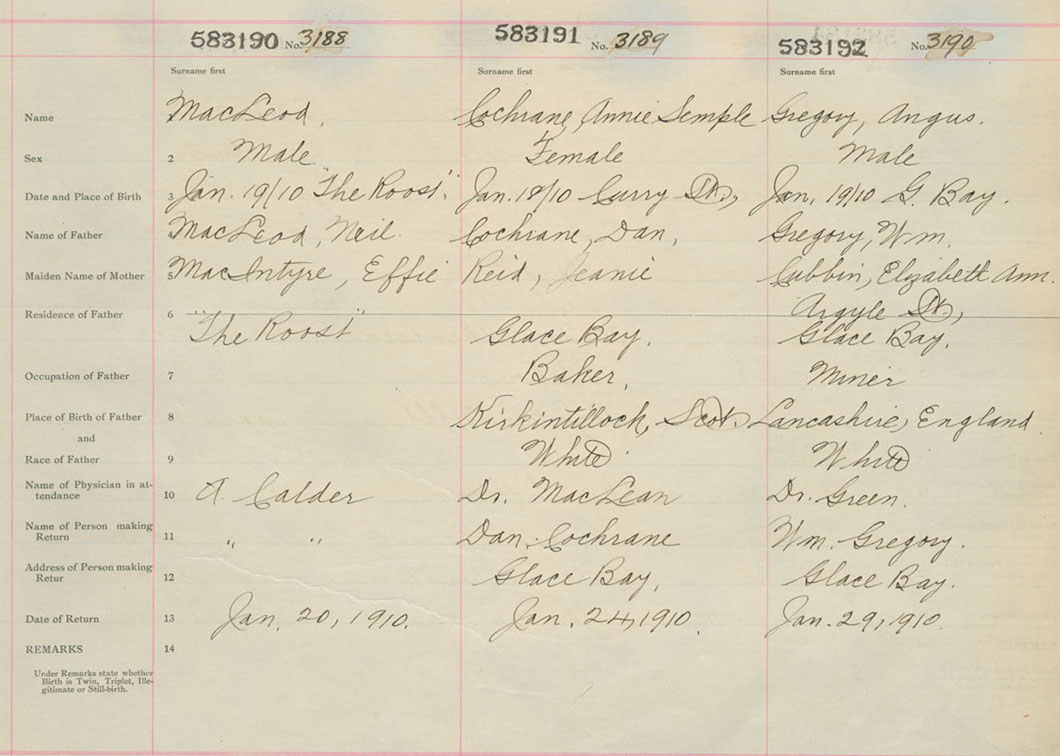 583190 No. 3188 583191 No. 3189 583192 No. 3190
Surname first Surname first Surname first
Name MacLeod, Cochrane, Annie Semple Gregory, Angus.
Sex 2 Male Female Male
Date and Place of Birth 3 Jan. 19/10 "The Roost". Jan. 18/10 Curry St., Jan, 19/10 G. Bay.
Name of Father 4 MacLeod, Neil. Cochrane, Dan, Gregory, Wm.
Maiden Name of Mother 5 MacIntyre, Effie Reid, Jeanie Cubbin, Elizabeth Ann.
Argyle St.,
Residence of Father 6 "The Roost" Glace Bay. Glace Bay.
Occupation of Father 7 Baker, Miner
Place of Birth of Father 8 Kirkintilloch, Scot. Lancashire, England
and
Race of Father 9 White White
Name of Physician in at-
tendance 10 A. Calder Dr. MacLean Dr. Green.
Name of Person making
Return 11 " " Dan. Cochrane Wm. Gregory.
Address of Person making
Retur 12 Glace Bay, Glace Bay.
Date of Return 13 Jan. 20, 1910. Jan. 24, 1910. Jan. 29, 1910.
REMARKS 14
Under Remarks state whether
Birth is Twin, Triplet, Ille-
gitimate or Still-birth.